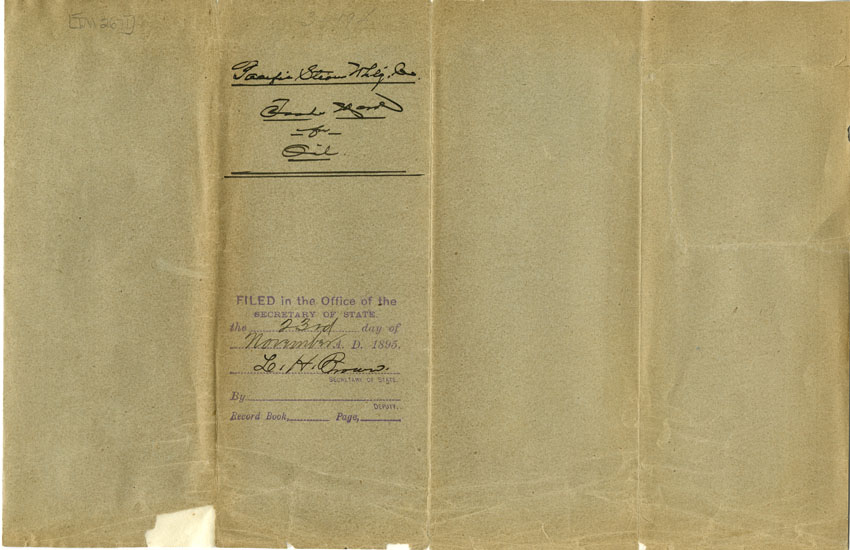 Pacific Steam Whlg. Co.
Trade Mark
- for -
Oil.
FILED in the Office of the
SECRETARY OF STATE.
the 23rd day of
November A. D. 1895.
L. H. Brown.
SECRETARY OF STATE.
By
DEPUTY.
Record Book, Page,